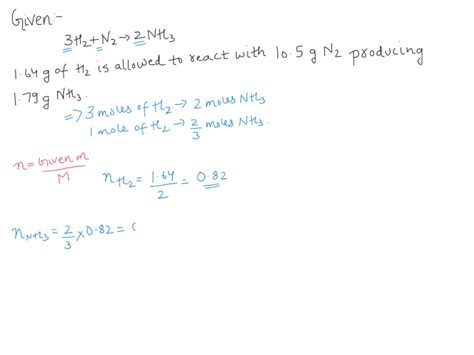 Given:-
3H₂ + N₂ → 2NH₃
1.64 g of H₂ is allowed to react with 10.5 g N₂ producing
1.79 g NH₃.
=> 3 moles of H₂ → 2 moles NH₃
1 mole of H₂ → 2/3 moles NH₃.
n = Given m/M
n H₂ = 1.64/2 = 0.82
n NH₃ = 2/3 × 0.82 = (